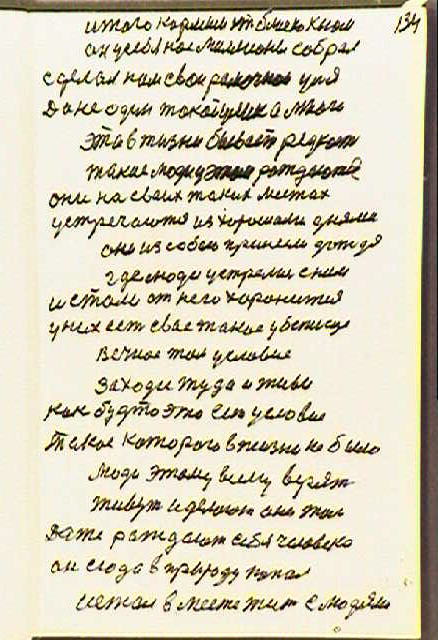 134
и того кормит ближе к ним
он у себя на миллионы собрал
сделал нам свои
да не один такой а много
эта в жизни бывает редкост
такие люди этим рождаются
они на своих таких местах
устречаются из хорошими днями
они из собою принесли дождя
где люди устрели с ним
и стали от него хоронится
у них ест свае такое убежище
вечное там условие
заходи туда и живи
как будто это ест условие
такое которого в жизни не было
люди этому всему верят
живут и делают они там
даже раждают себя человека
он сюда в природу попал
и стал в месте жит с людями